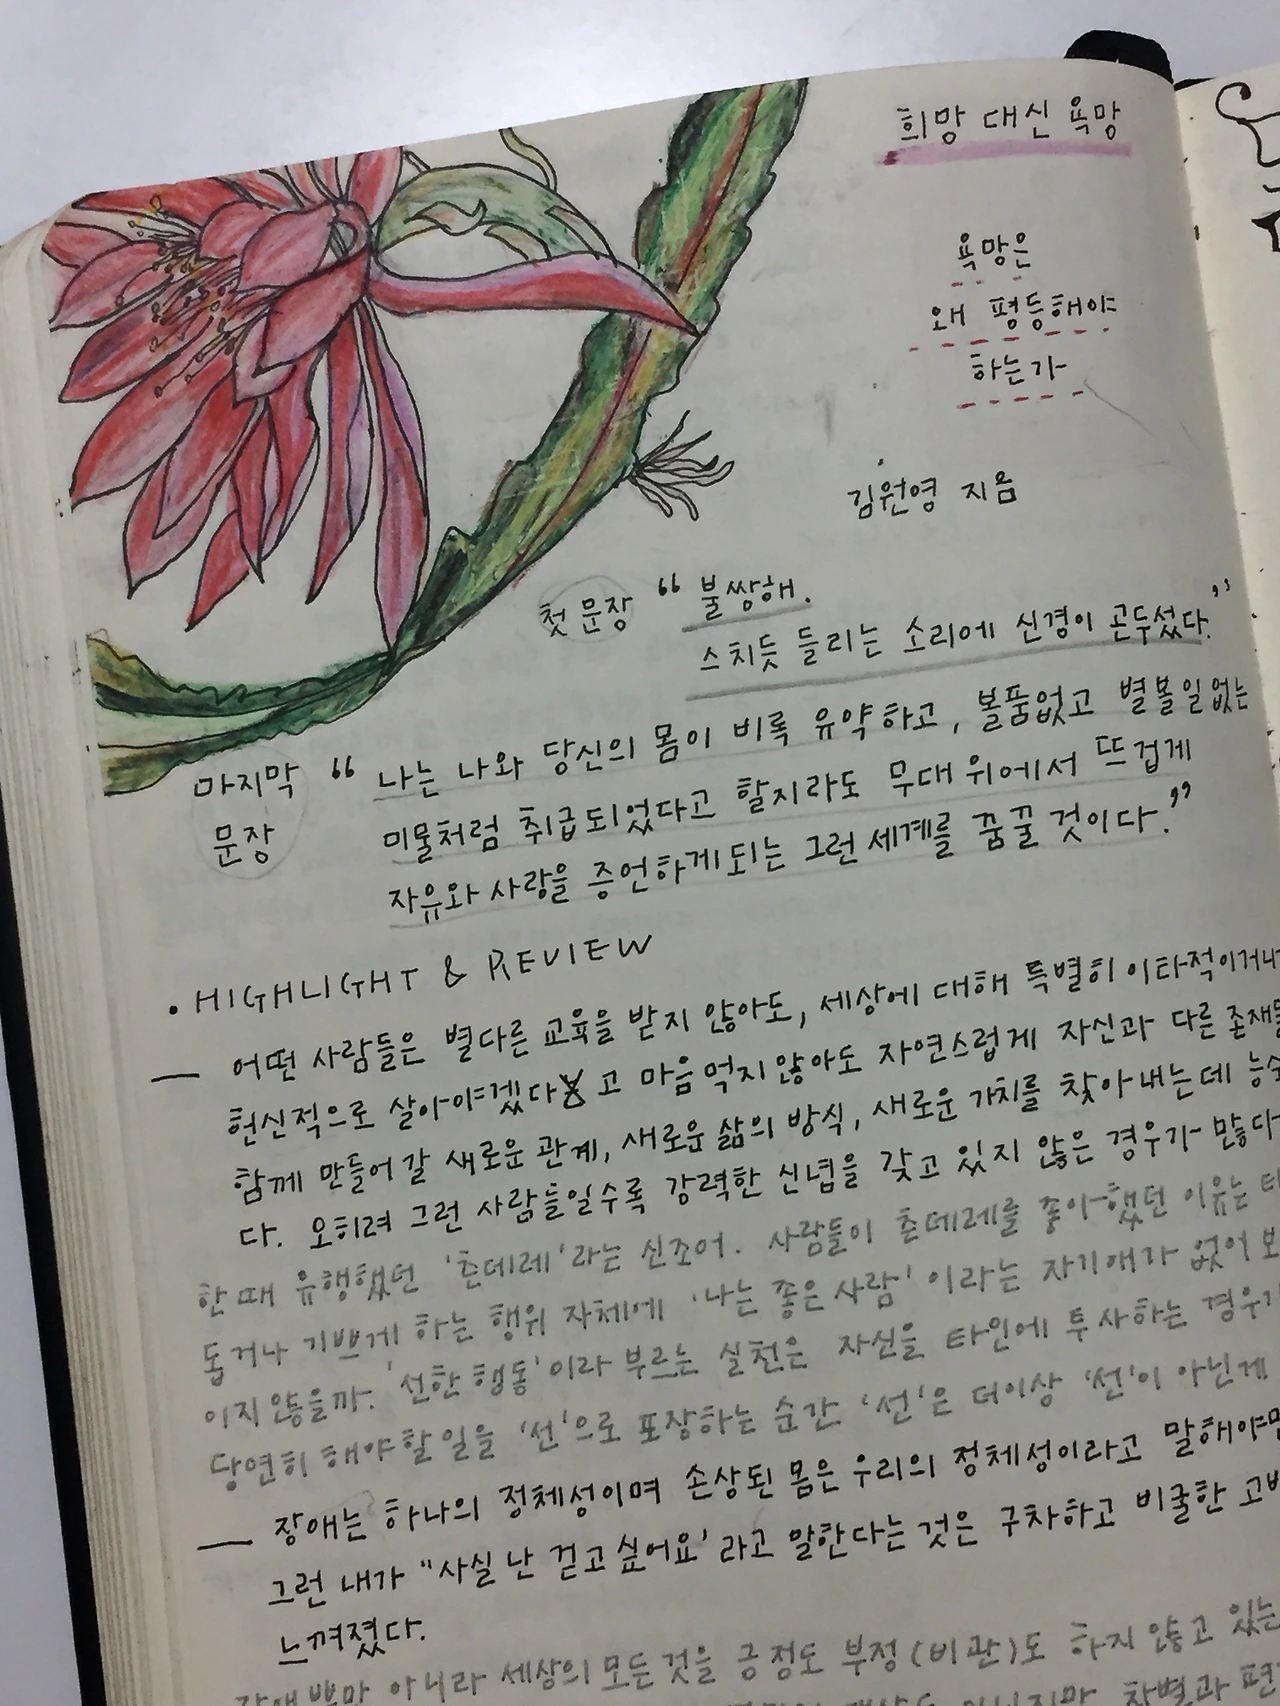 희망 대신 욕망
욕망은
왜 평등해야
하는가
김원영 지음
첫 문장 “ 불쌍해.
스치듯 들리는 소리에 신경이 곤두섰다.”
마지막 “ 나는 나와 당신의 몸이 비록 유약하고, 볼품없고 별볼일없는
문장 미물처럼 취급되었다고 할지라도 무대 위에서 뜨겁게
자유와 사랑을 증언하게되는 그런 세계를 꿈꿀 것이다.”
• HIGHLIGHT & REVIEW
— 어떤 사람들은 별다른 교육을 받지 않아도, 세상에 대해 특별히 이타적이거나
헌신적으로 살아야겠다고 마음먹지 않아도 자연스럽게 자신과 다른 존재들
함께 만들어갈 새로운 관계, 새로운 삶의 방식, 새로운 가치를 찾아내는데 능숙
다. 오히려 그런 사람들일수록 강력한 신념을 갖고 있지 않은 경우가 많다
한때 유행했던 '츤데레'라는 신조어. 사람들이 츤데레를 좋아했던 이유는
돕거나 기쁘게 하는 행위 자체에 '나는 좋은 사람' 이라는 자기애가 없어
이지 않을까. '선한 행동'이라 부르는 실천은 자신을 타인에 투사하는 경우가
당연히 해야할 일을 '선'으로 포장하는 순간 '선'은 더이상 '선'이 아닌게
— 장애는 하나의 정체성이며 손상된 몸은 우리의 정체성이라고 말해야만
그런 내가 “사실 난 걷고 싶어요' 라고 말한다는 것은 구차하고 비굴한 고백
느껴졌다.
뿐만 아니라 세상의 모든 것을 긍정도 부정(비관)도 하지 않고 있는
아닌지만 차별과